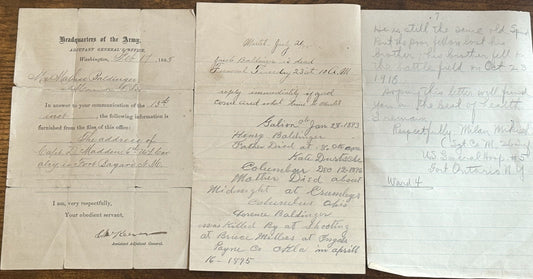 Headquarters of the Army,
ADJUTANT GENERAL'S OFFICE,
Washington, Feb 17, 1885
In answer to your communication of the 13th
inst, the following information is
furnished from the files of this office:
The address of
Capt. D. Madden 6th U.S. Cav
alry is Fort Bayard N.M.
I am, very respectfully,
Your obedient servant,
Assistant Adjutant General.
July 21
Baldinger is dead
Funeral Tuesday 23 at 10 A.M
reply immediately if you
Galion Jan 28-1873
Henry Baldinger
Father Died at
Kate
Columbus Dec 12-1876
Mother Died about
Midnight at Crumleys
Columbus Ohio
Florence Baldinger
was Killed By a Shooting
at Bruce Millers at Ingalls
Payne Co Okla in april
16-1895
7.
He is still the same old
But the poor fellow lost his
brother. His brother fell in
the battle field on Oct 23
1916
Hoping this letter will find
you in the best of health
I remain
Respectfully. Milan
Sgt Co M.
US General Hosp. #5
Fort Ontario N.Y
Ward 4